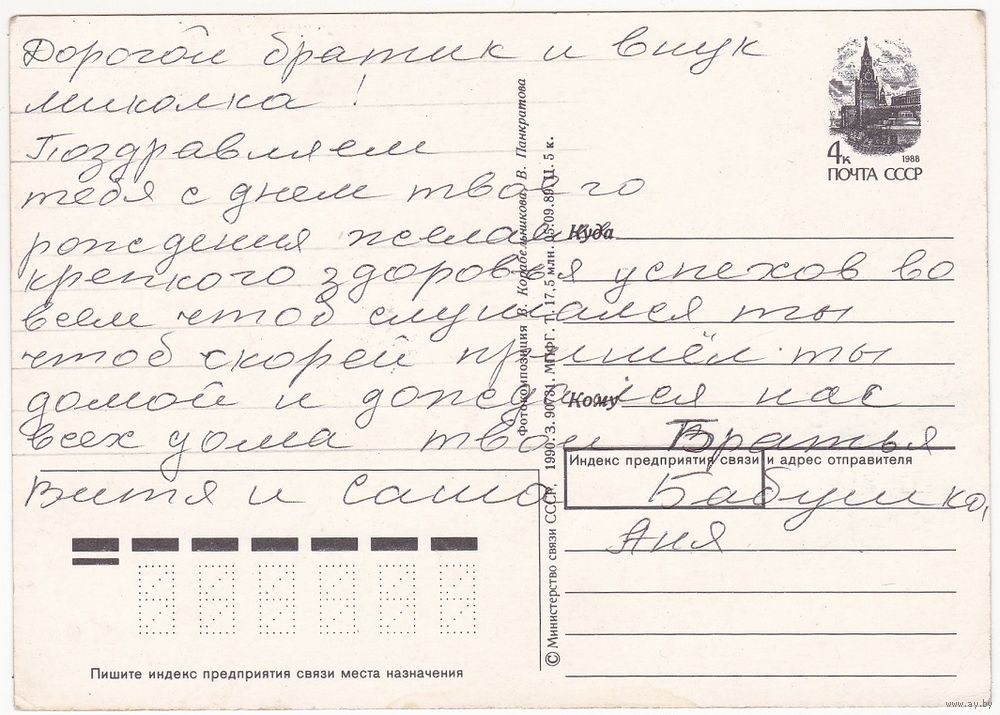 Дорогой братик и внук
миколка!
Поздравляем
тебя с днем твоего
рождения желаем
крепкого здоровья успехов во
всем чтоб слушался ты
чтоб скорей пришёл ты
домой и дождался нас
всех дома твои Братья
Витя и Саша Бабушка,
Аня
4к
1988
ПОЧТА СССР
Куда
Кому
Индекс предприятия связи и адрес отправителя
Пишите индекс предприятия связи места назначения
Фотокомпозиция В. Корабельникова, В. Панкратова
© Министерство связи СССР, 1990. З. 90731. МПФГ. Т. 17,5 млн. 05.09.89. Ц. 5 к.
www.ay.by